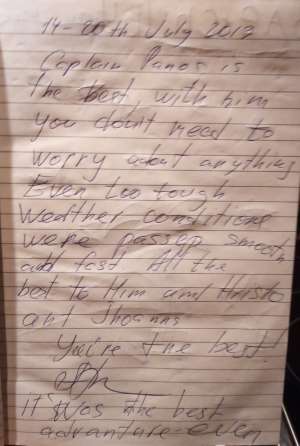 14-20th July 2013
Captain Panos is
the best, with him
you don't need to
worry about anything
Even too tough
Weather conditions
were passed smooth
and fast All the
best to Him and Hristo
ant Jhoanna
You're the best!
IT Was the best
advanture even